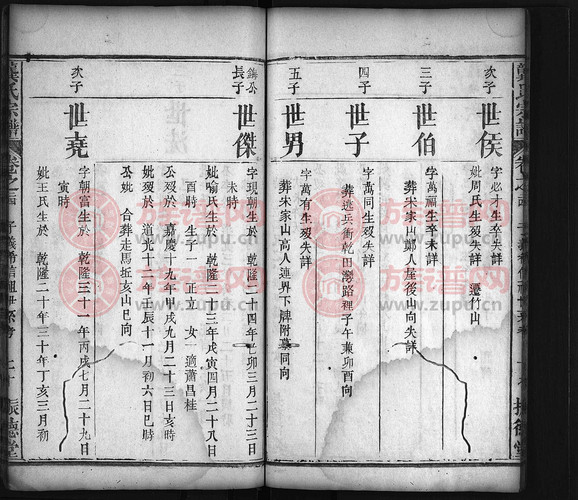 次子
世侯
字必才生卒失詳
妣周氏生歿失詳 遷竹山
三子
世伯
字萬福生卒未詳
葬宋家山鄭人屋後山向失詳
四子
世子
字萬同生歿失詳
葬逃兵衝乾田灣路裡子午兼卯酉向
五子
世男
字萬有生歿失詳
葬宋家山高人連界下牌附墓同向
錦公
長子
世傑
字現朝生於 乾隆二十四年己卯三月二十三日
未時
妣喻氏生於 乾隆二十三年戊寅四月二十八日
酉時 生子一 正立 女一適蕭昌桂
公歿於 嘉慶十九年甲戌九月二十三日亥時
妣歿於 道光十二年壬辰十一月初六日巳時
公妣 合葬走馬坵亥山巳向
次子
世堯
字朝富生於 乾隆三十一年丙戌七月二十九日
寅時
妣王氏生於 乾隆二十年三十年丁亥三月初
龔氏宗譜
卷之
振德堂
龔氏宗譜
族譜网
www.zupu.cn